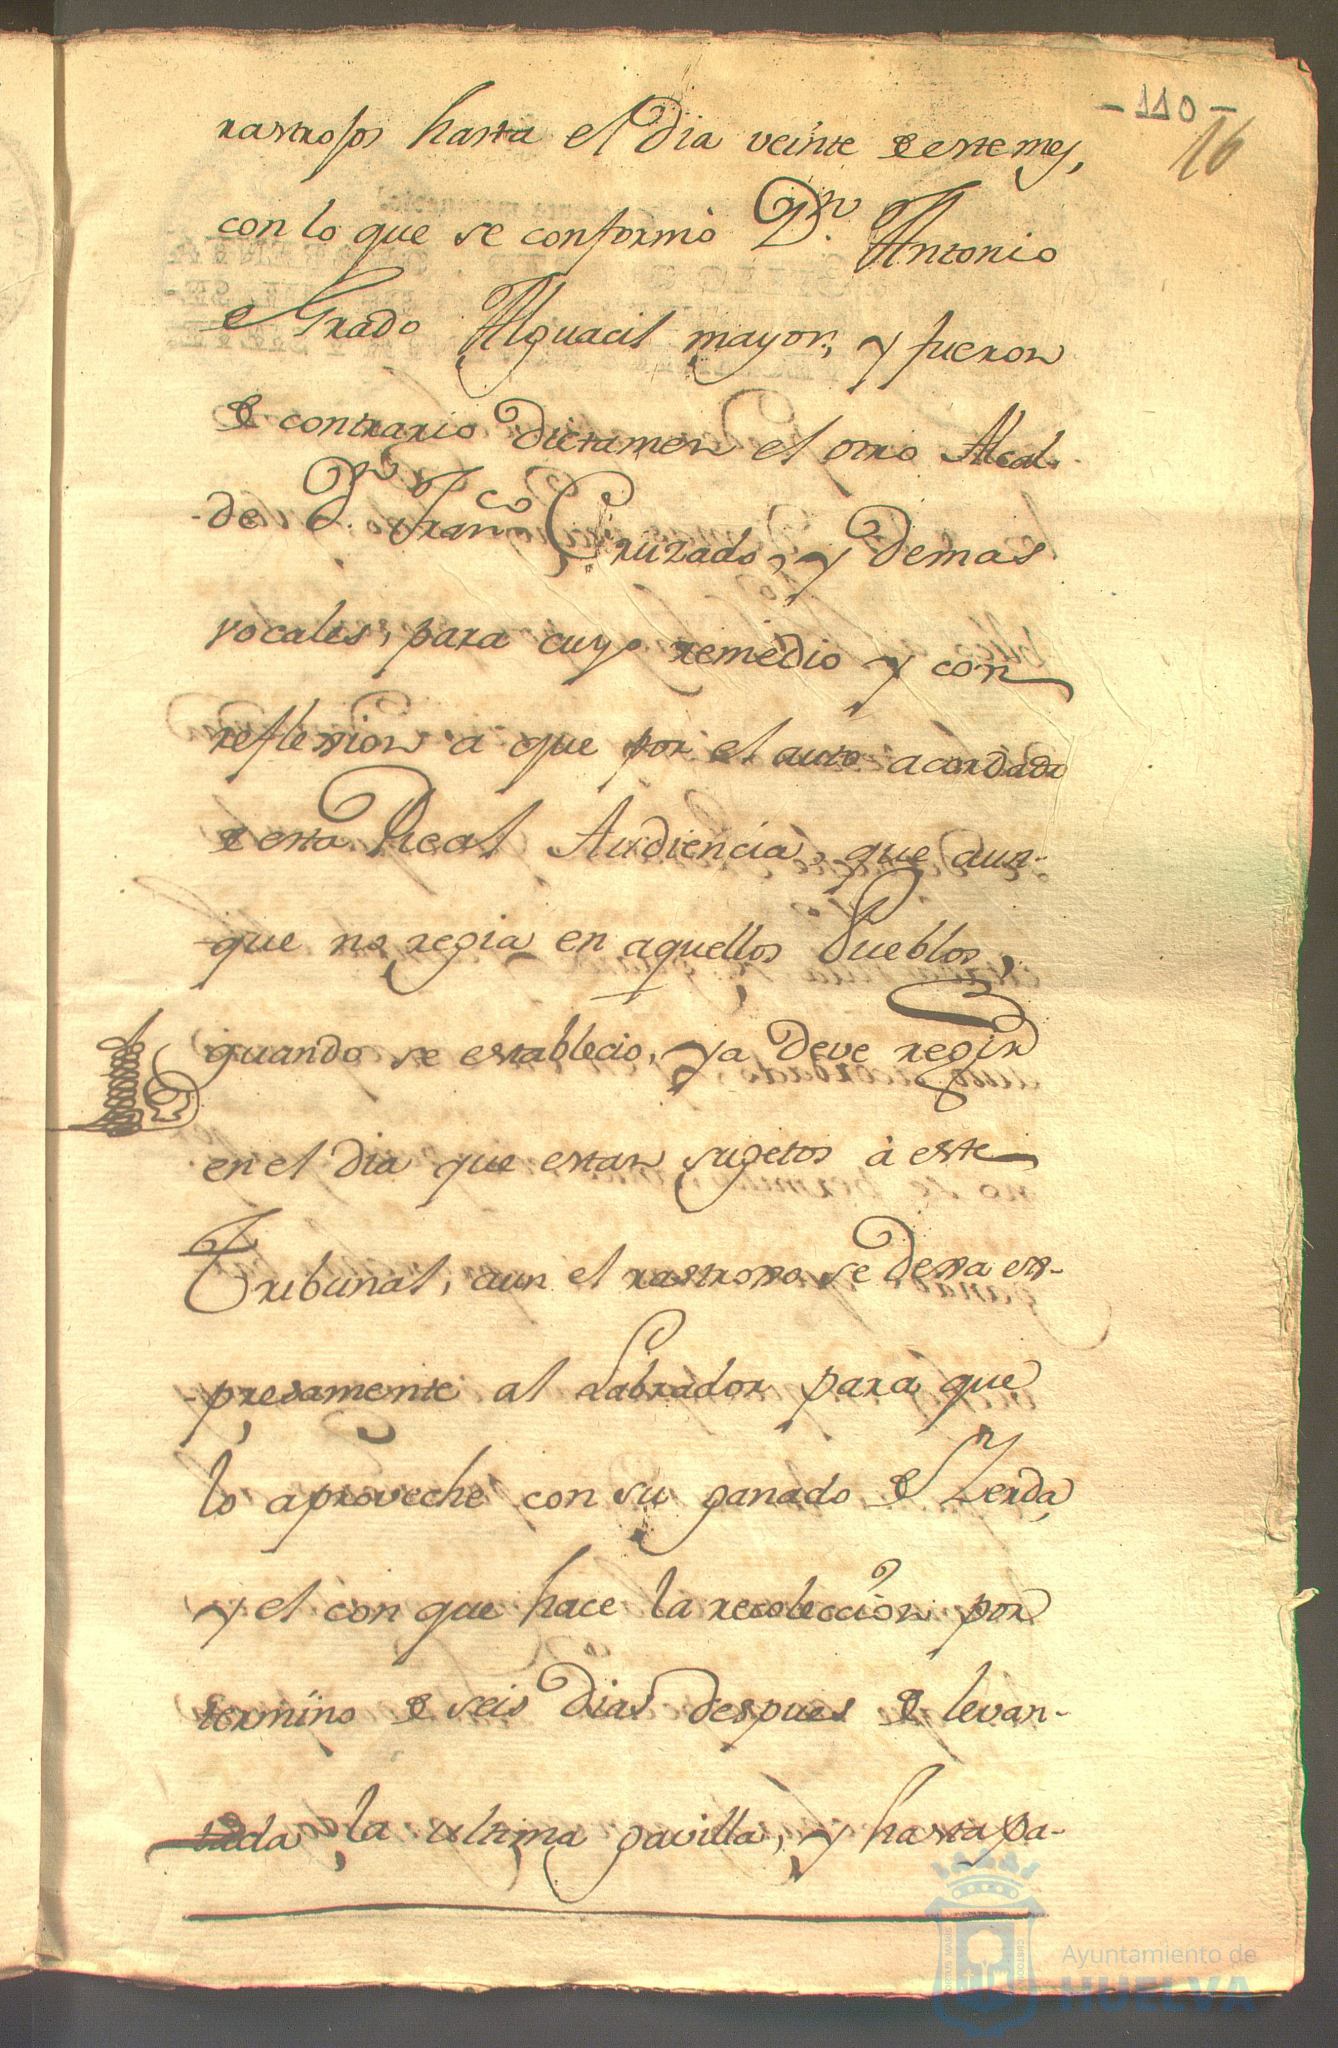 -110-
16
rastrojos hasta el dia veinte de este mes,
con lo que se conformò Dn. Antonio
de Grado Alguacil mayor, y fueron
de contrario dictamen el otro Alcal-
-de Dn. Franco Cruzado, y demas
vocales, para cuyo remedio y con
reflexion a que por el auto acordado
de esta Real Audiencia, que aun-
-que no regia en aquellos Pueblos,
quando se establecio, ya deve regir
en el dia que estan sugetos à este
Tribunal, aun el rastrojo se dexa ex-
-presamente al Labrador para que
lo aproveche con su ganado de Zerda,
y el con que hace la recoleccion por
termino de seis dias despues de levan-
tada la ultima gavilla, y hasta pa-
Ayuntamiento de
HUELVA